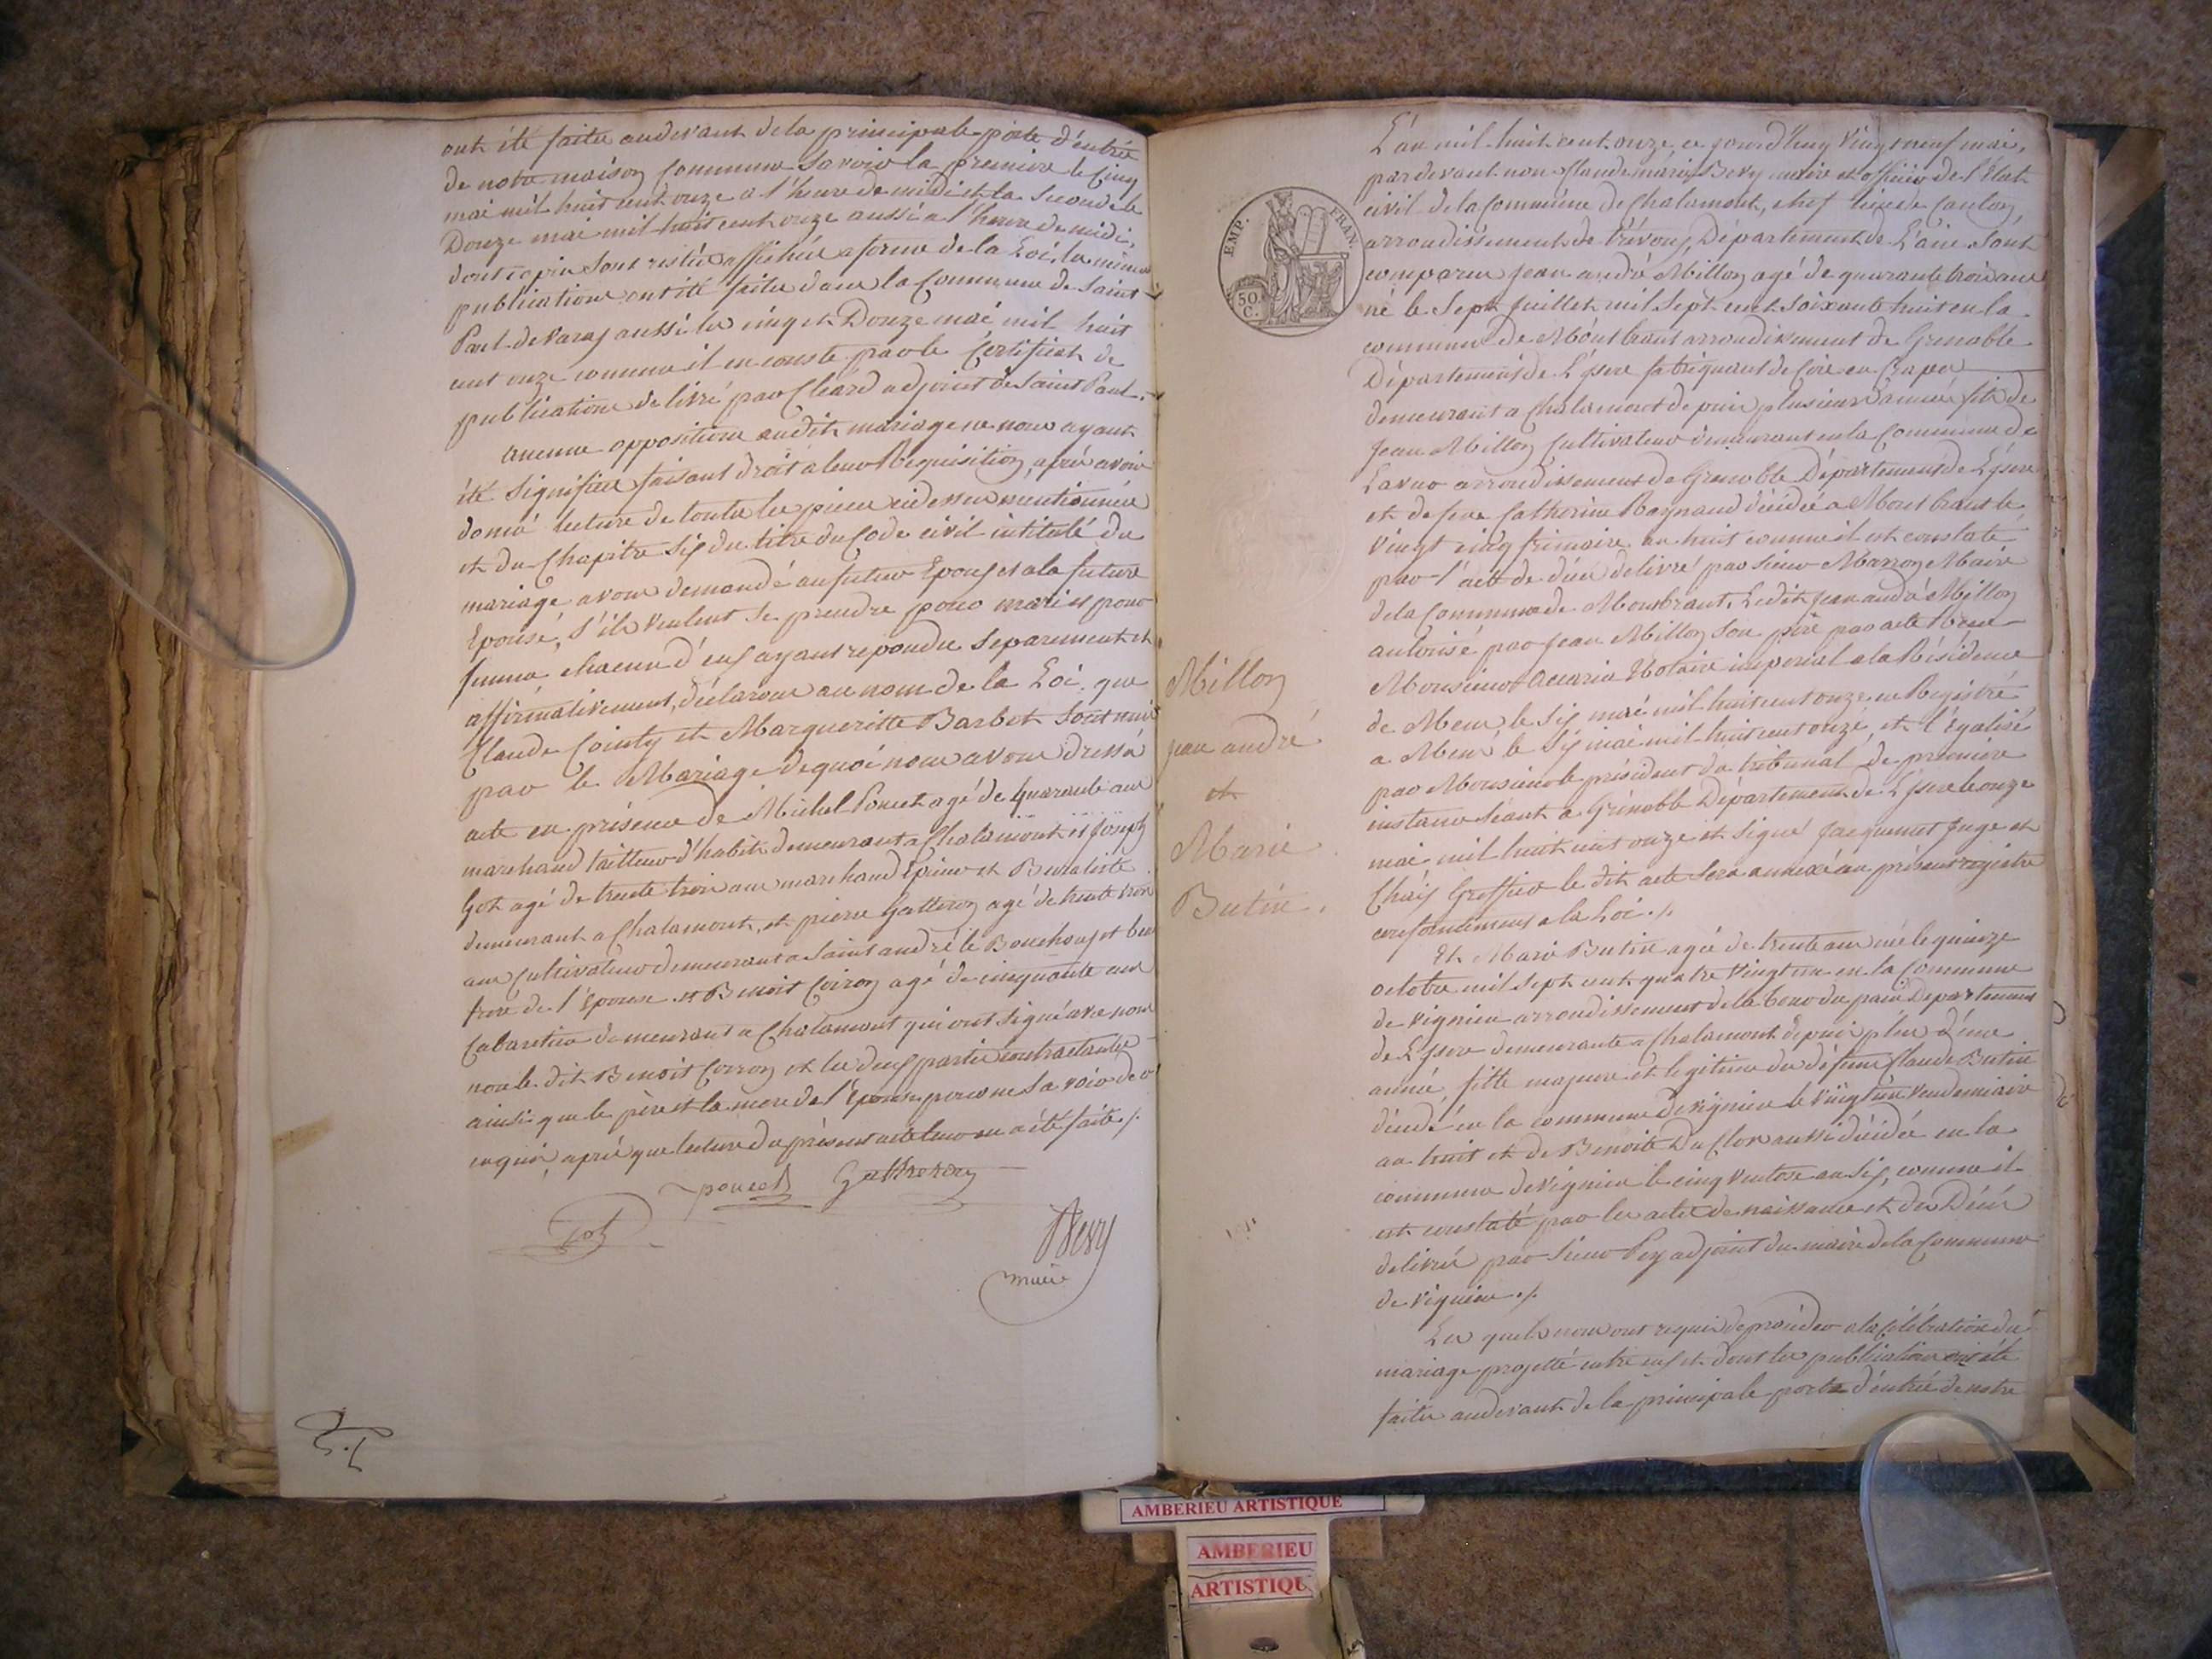 ont été faites audevant de la principale porte d'entrée
de notre maison Commune Savoir la premiere le Cinq
mai mil huit cent onze a l'heure de midi et la Seconde le
Douze mai mil huit cent onze aussi a l'heure de midi,
dont copies Sont restées affichées a forme de la Loi, les mêmes
publications ont été faites dans la Commune de Saint
Paul de Varax aussi les cinq et Douze mai mil huit
cent onze comme il en conste par le Certificat de
publications delivré par Cléard adjoint de Saint Paul.
aucune opposition audit mariage ne nous ayant
été Signifiée faisant droit a leur Requisition, après avoir
donné lecture de toutes les pieces cidessus mentionnées
et du Chapitre Six du titre du Code civil intitulé du
mariage avons demandé au futur Epoux et a la future
Epouse, s'ils veulent Se prendre pour mari et pour
femme chacun d'eux ayant repondu Separement et
affirmativement, déclarons au nom de la Loi, que
Claude Cointy et Margueritte Barbet Sont unis
par le Mariage de quoi nous avons dressé
acte en présence de Michel Poncet agé de quarante ans
marchand tailleur d'habits demeurant a Chalamont et Joseph
Got agé de trente trois ans marchand Epicier et Buraliste
demeurant a Chalamont, et pierre Gatteron agé de trente trois
ans Cultivateur demeurant a Saint andré le Bouchoux et beau
frere de l'épouse et Benoit Coiron agé de cinquante ans
Cabaretier demeurant a Chalamont qui ont signé avec nous
non le dit Benoit Coiron et les deux parties contractantes
ainsi que le père et la mere de l'Epouse pour ne Savoir de ce
enquis, après que lecture du présent acte leur en a été faite ./.
poncet Gattreron
Got
Bevy
maire
EMP. FRAN.
50. C.
L'an mil huit cent onze, ce jourd'huy Vingt neuf mai,
pardevant nous Claude marie Bevy maire et officier de l'Etat
civil de la Commune de Chalamont, chef lieu de Canton,
arrondissement de Trévoux, Département de L'ain Sont
comparus Jean andré Millon agé de quarante trois ans
né le Sept Juillet mil Sept cent Soixante huit en la
commune de Montbrant arrondissement de Grenoble
Département de L'isere fabriquant de
demeurant a Chalamont depuis plusieurs années fils de
Jean Millon Cultivateur demeurant en la Commune de
Lavar arrondissement de Grenoble Département de L'isere
et de feue Catherine Raynaud décédée a Montbrant le
Vingt cinq frimaire an huit comme il est constaté
par l'acte de décès delivré par Sieur Marron Maire
de la Commune de Montbrant, Ledit Jean andré Millon
autorisé par Jean Millon Son père par acte Reçu
Monsieur Accarias Notaire imperial a la Résidence
de Mens le Six mai mil huit cent onze en Registré
a Mens le Six mai mil huit cent onze, et légalisé
par Monsieur le président du tribunal de premiere
instance Séant a Grénoble Département de L'isere le onze
mai mil huit cent onze et Signé Jacquemet Juge et
Greffier le dit acte Sera annexé au présent registre
conformément a la Loi ./.
Et Marie Butin agée de trente ans née le quinze
octobre mil Sept cent quatre Vingt un en la Commune
de Vignieu arrondissement de la tour du pain Departement
de L'isere demeurante a Chalamont depuis plus d'une
année, fille majeure et legitime du defunt Claude Butin
décédé en la commune de Vignieu le Vingt un Vendemiaire
an huit et de Benoite Du Clos aussi décédée en la
commune de Vignieu le cinq Ventose an Six, comme il
est constaté par les actes de naissance et de Décès
delivrés par Sieur Pey adjoint du maire de la Commune
de Vignieu ./.
Les quels nous ont requis de procéder a la Célébration du
mariage projetté entre eux et dont les publications ont été
faites audevant de la principale porte d'entrée de notre
Millon
jean andré
et
Marie
Butin.
AMBERIEU ARTISTIQUE
AMBERIEU
ARTISTIQU